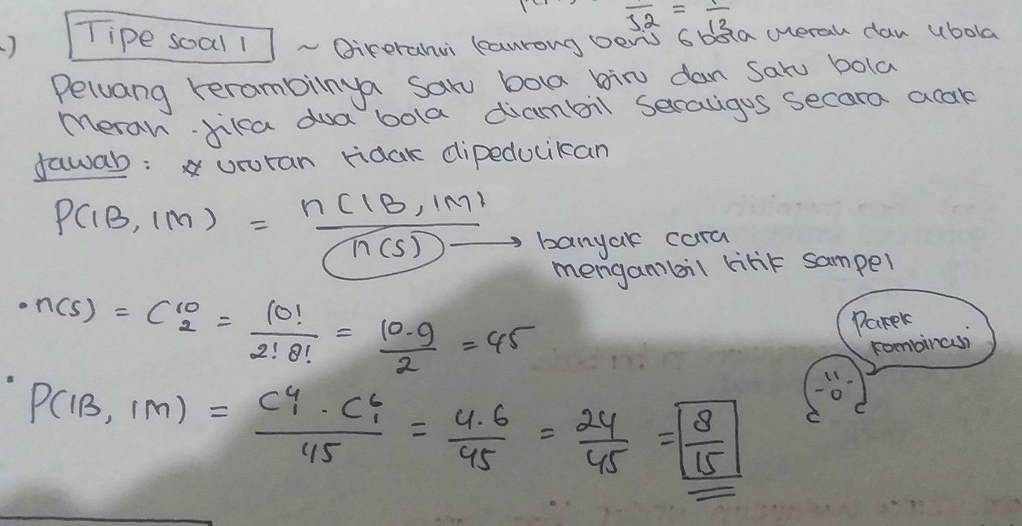 52 = 1/13
.) Tipe soal 1 ~ Diketahui kantong berisi 6 bola merah dan 4 bola
Peluang terambilnya satu bola biru dan satu bola
merah . jika dua bola diambil sekaligus secara acak
Jawab : * urutan tidak dipedulikan
P(1B, 1M) = n(1B, 1M) / n(S) → banyak cara
mengambil titik sampel
• n(S) = C¹⁰₂ = 10! / 2! 8! = 10.9 / 2 = 45
Pakek
kombinasi
• P(1B, 1M) = C⁴₁ . C⁶₁ / 45 = 4.6 / 45 = 24 / 45 = 8 / 15